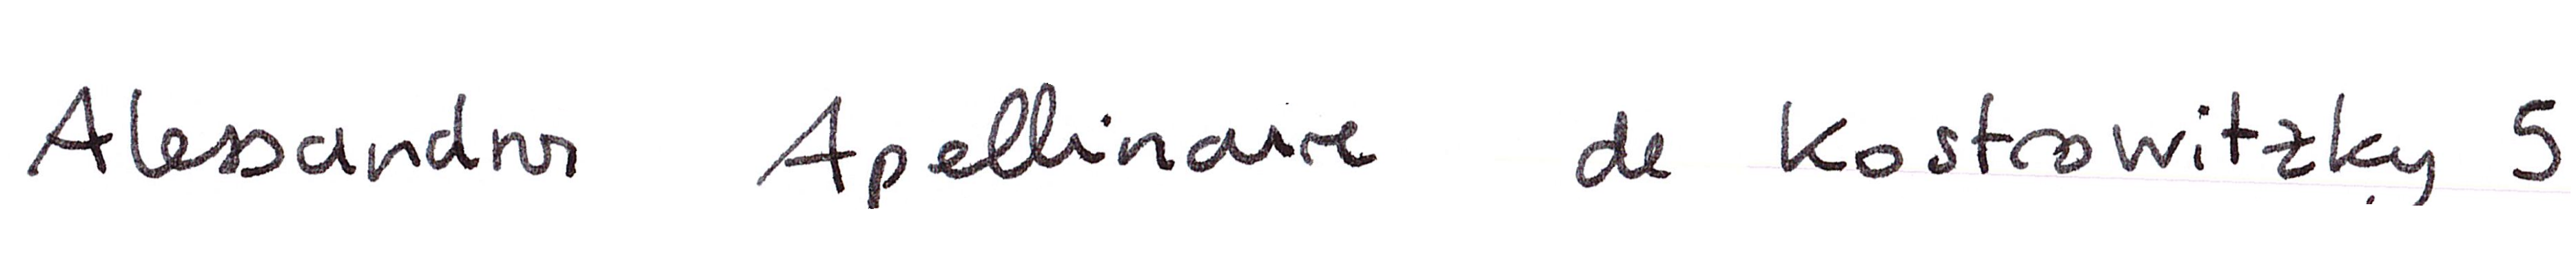 Alessandro Apellinaire de Kostrowitzky 5